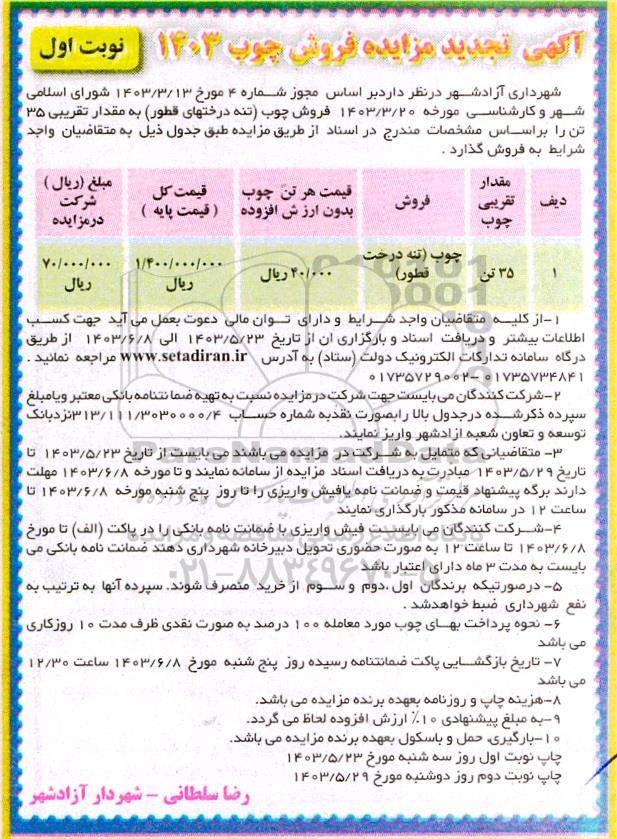 آگهی تجدید مزایده فروش چوب ۱۴۰۳
نوبت اول
شهرداری آزادشهر درنظر داردبر اساس مجوز شماره ۴ مورخ ۱۴۰۳/۳/۱۳ شورای اسلامی
شهر و کارشناسی مورخه ۱۴۰۳/۳/۲۰ فروش چوب (تنه درختهای قطور) به مقدار تقریبی ۳۵
تن را براساس مشخصات مندرج در اسناد از طریق مزایده طبق جدول ذیل به متقاضیان واجد
شرایط به فروش گذارد .
دیف | مقدار تقریبی چوب | فروش | قیمت هر تن چوب بدون ارزش افزوده | قیمت کل ( قیمت پایه ) | مبلغ (ریال ) شرکت درمزایده
۱ | ۳۵ تن | چوب (تنه درخت قطور) | ۴۰/۰۰۰ ریال | ۱/۴۰۰/۰۰۰/۰۰۰ ریال | ۷۰/۰۰۰/۰۰۰ ریال
۱-از کلیه متقاضیان واجد شرایط و دارای توان مالی دعوت بعمل می آید جهت کسب
اطلاعات بیشتر و دریافت اسناد و بارگزاری ان از تاریخ ۱۴۰۳/۵/۲۳ الی ۱۴۰۳/۶/۸ از طریق
درگاه سامانه تدارکات الکترونیک دولت (ستاد) به آدرس www.setadiran.ir مراجعه نمائید .
۰۱۷۳۵۷۲۹۰۰۲-۰۱۷۳۵۷۳۴۸۴۱
۲-شرکت کنندگان می بایست جهت شرکت در مزایده نسبت به تهیه ضمانتنامه بانکی معتبر ویامبلغ
سپرده ذکرشده درجدول بالا رابصورت نقدبه شماره حساب ۳۱۳/۱۱۱/۳۰۳۰۰۰۰/۴نزدبانک
توسعه و تعاون شعبه ازادشهر واریز نمایند.
۳- متقاضیانی که متمایل به شرکت در مزایده می باشند می بایست از تاریخ ۱۴۰۳/۵/۲۳ تا
تاریخ ۱۴۰۳/۵/۲۹ مبادرت به دریافت اسناد مزایده از سامانه نمایند و تا مورخه ۱۴۰۳/۶/۸ مهلت
دارند برگه پیشنهاد قیمت و ضمانت نامه یافیش واریزی را تا روز پنج شنبه مورخه ۱۴۰۳/۶/۸ تا
ساعت ۱۲ در سامانه مذکور بارگذاری نمایند
۴-شرکت کنندگان می بایست فیش واریزی یا ضمانت نامه بانکی را در پاکت (الف) تا مورخ
۱۴۰۳/۶/۸ تا ساعت ۱۲ به صورت حضوری تحویل دبیرخانه شهرداری دهند ضمانت نامه بانکی می
بایست به مدت ۳ ماه دارای اعتبار باشد
۵- درصورتیکه برندگان اول ،دوم و سوم از خرید منصرف شوند. سپرده آنها به ترتیب به
نفع شهرداری ضبط خواهدشد .
۶- نحوه پرداخت بهای چوب مورد معامله ۱۰۰ درصد به صورت نقدی ظرف مدت ۱۰ روزکاری
می باشد
۷- تاریخ بازگشایی پاکت ضمانتنامه رسیده روز پنج شنبه مورخ ۱۴۰۳/۶/۸ ساعت ۱۲/۳۰
می باشد
۸-هزینه چاپ و روزنامه بعهده برنده مزایده می باشد.
۹-به مبلغ پیشنهادی ۱۰٪ ارزش افزوده لحاظ می گردد.
۱۰-بارگیری، حمل و باسکول بعهده برنده مزایده می باشد.
چاپ نوبت اول روز سه شنبه مورخ ۱۴۰۳/۵/۲۳
چاپ نوبت دوم روز دوشنبه مورخ ۱۴۰۳/۵/۲۹
رضا سلطانی - شهردار آزادشهر
۰۲۱-۸۸۳۴۹۶۷۰-۵